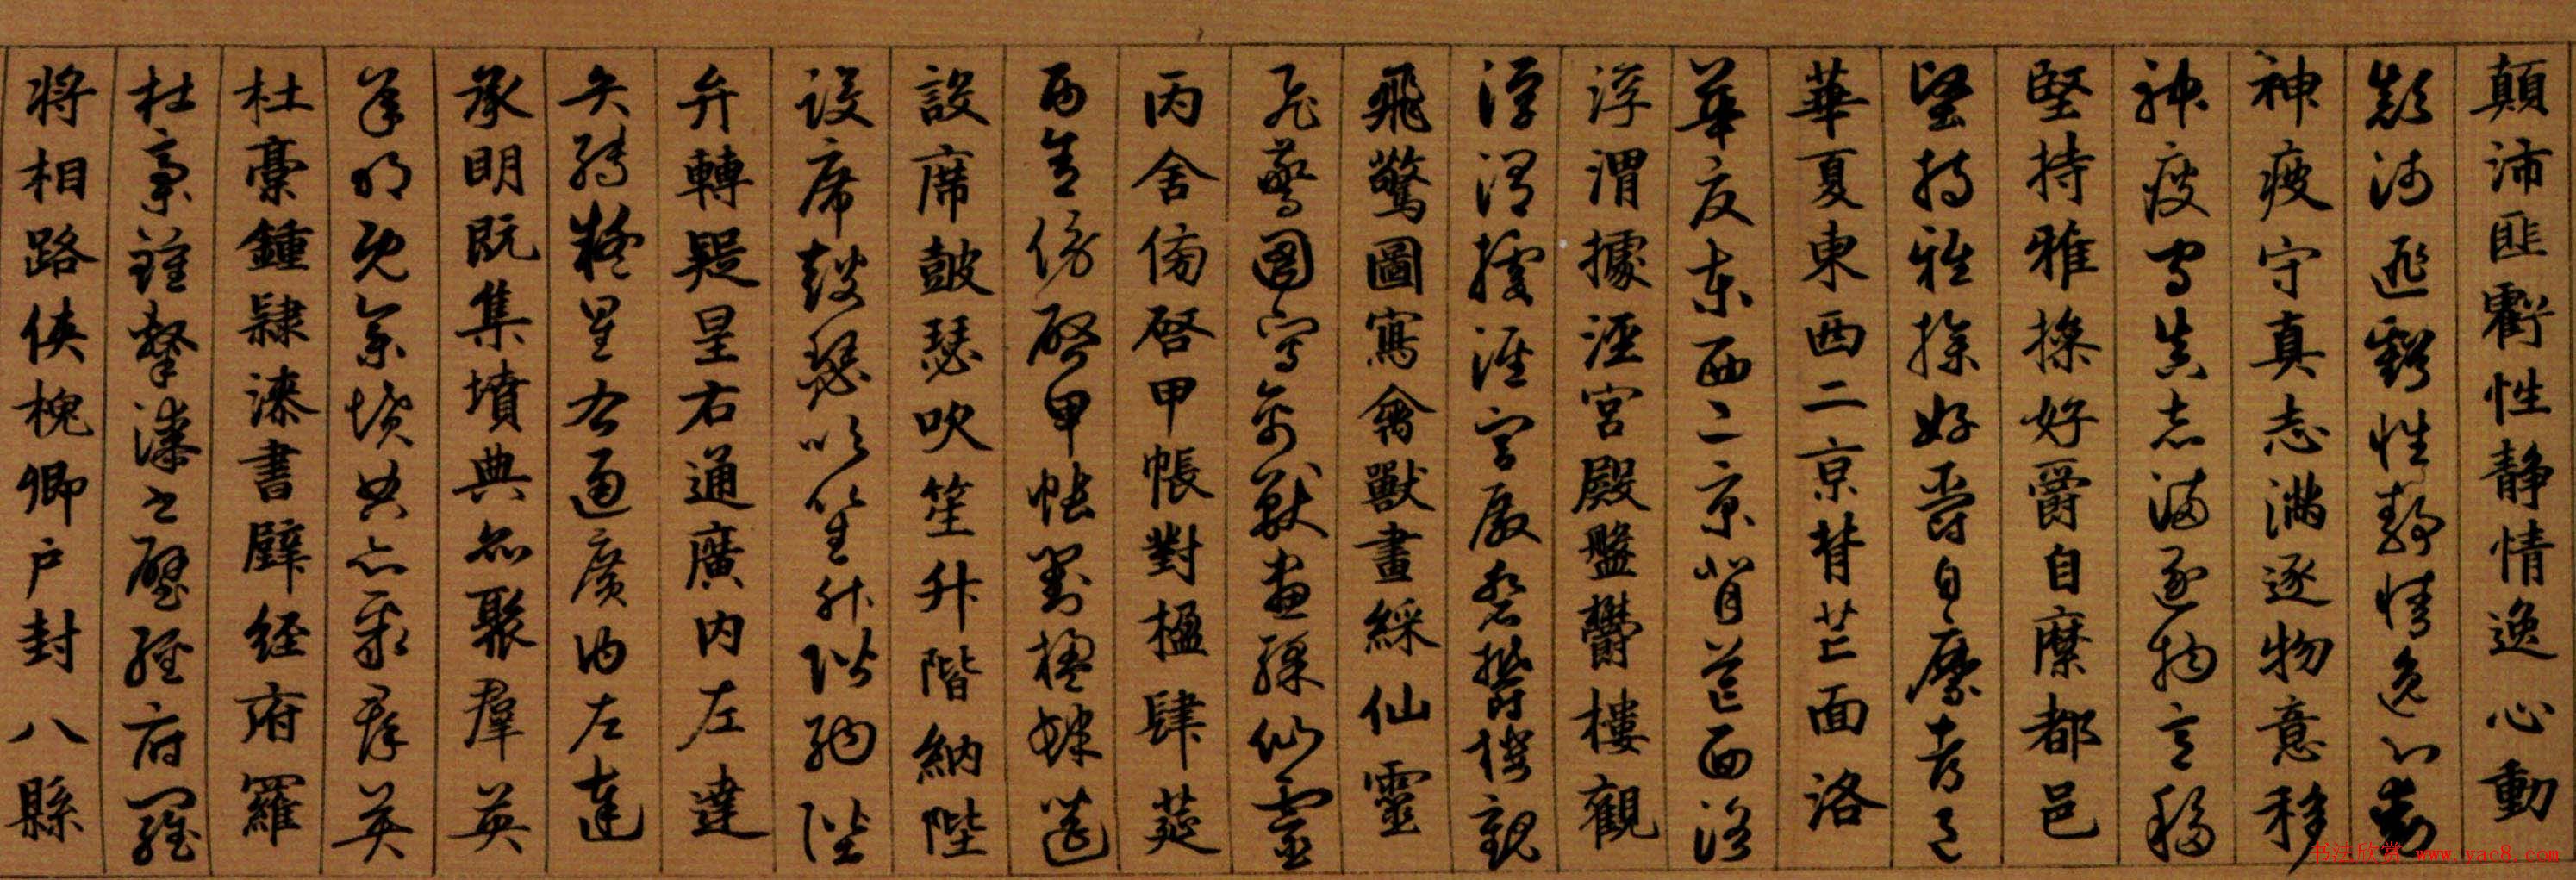 顛沛匪虧性静情逸心動
顛沛匪虧性静情逸心動
神疲守真志滿逐物意移
神疲守真志滿逐物意移
堅持雅操好爵自縻都邑
堅持雅操好爵自縻都邑
華夏東西二京背芒面洛
華夏東西二京背芒面洛
浮渭據涇宮殿盤鬱樓觀
浮渭據涇宮殿盤鬱樓觀
飛驚圖寫禽獸畫綵仙靈
飛驚圖寫禽獸畫綵仙靈
丙舍傍啓甲帳對楹肆莚
丙舍傍啓甲帳對楹肆莚
設席鼓瑟吹笙升階納陛
設席鼓瑟吹笙升階納陛
弁轉疑星右通廣内左達
弁轉疑星右通廣内左達
承明既集墳典亦聚羣英
承明既集墳典亦聚羣英
杜稾鍾隸漆書壁經府羅
杜稾鍾隸漆書壁經府羅
将相路俠槐卿户封八縣
书法欣赏 www.yac8.com